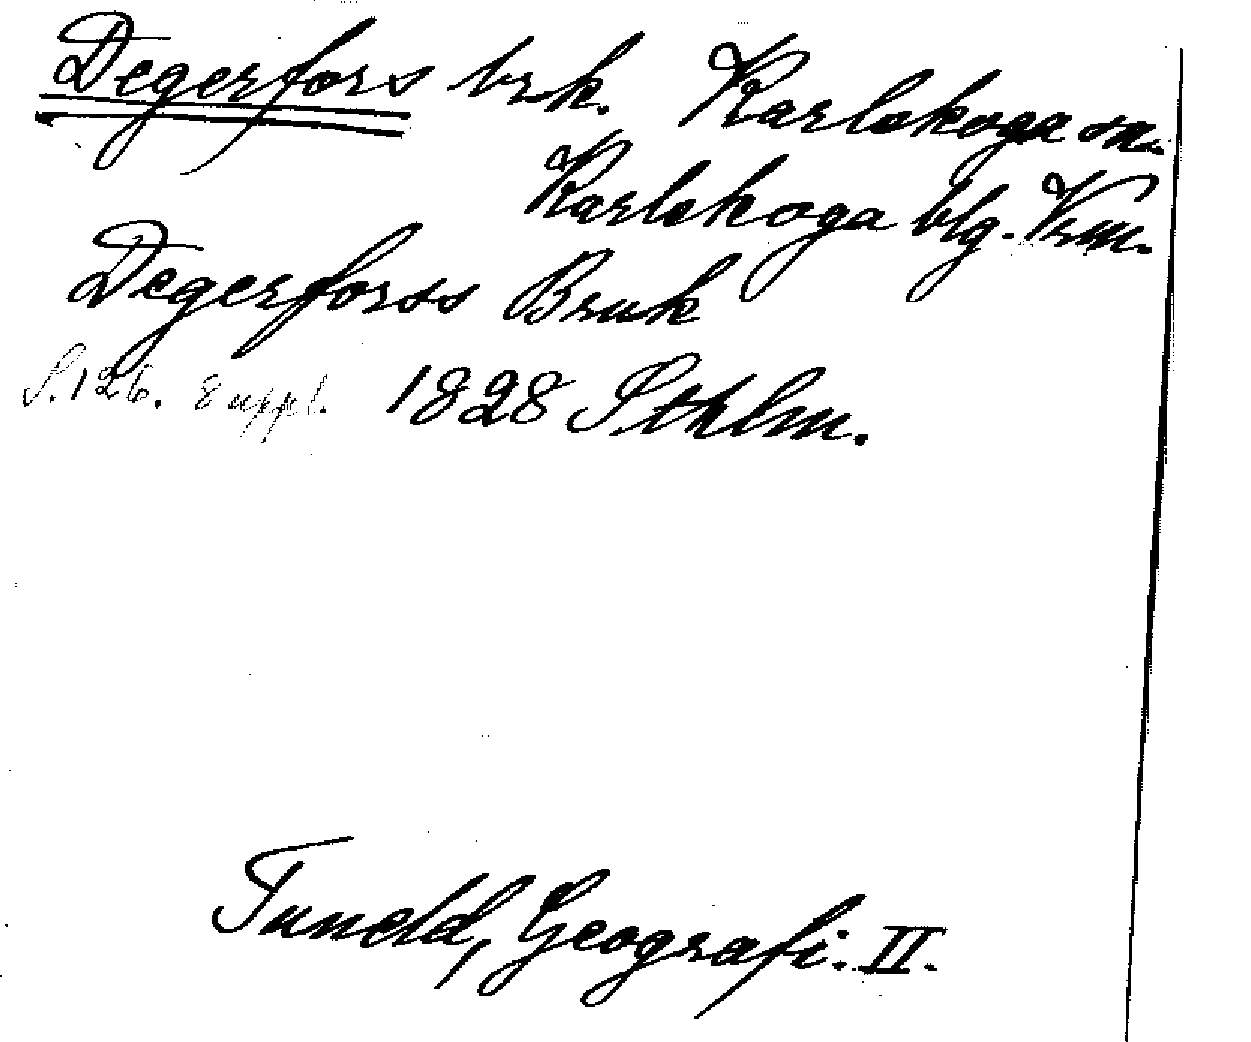 Degerfors brk. Karlskoga sn.
Karlskoga blg. Vrm.
Degerforss Bruk
S. 126. 8 uppl. 1828 Sthlm.
Tuneld, Geografi. II.